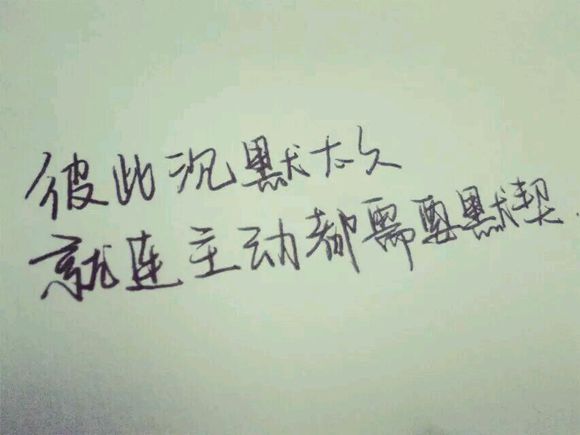 彼此沉默太久
就连主动都需要默契.